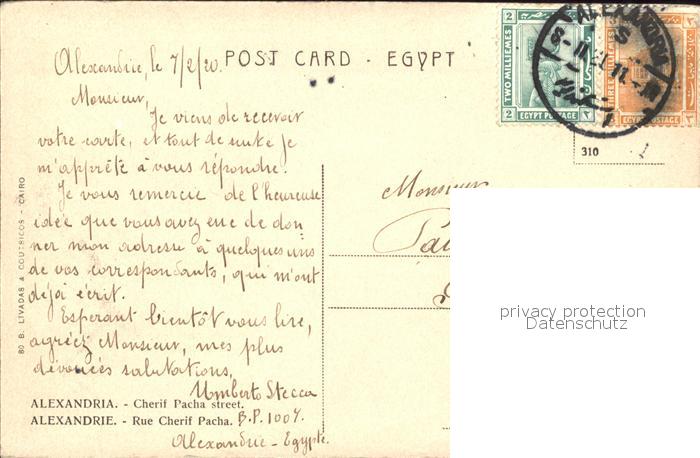 Alexandrie, le 7/2/20.
POST CARD - EGYPT
Monsieur,
Je viens de recevoir
votre carte, et tout de suite je
m'apprête à vous répondre.
Je vous remercie de l'heureuse
idée que vous avez eue de don
ner mon adresse à quelques uns
de vos correspondants, qui m'ont
déjà écrit.
Espérant bientôt vous lire,
agréez Monsieur, mes plus
dévouées salutations.
Umberto Stecca
B.P. 1007.
Alexandrie - Egypte.
ALEXANDRIA. - Cherif Pacha street.
ALEXANDRIE. - Rue Cherif Pacha.
80 B. LIVADAS & COUTSICOS - CAIRO
2 2
TWO MILLIEMES
EGYPT POSTAGE
THREE MILLIEMES
EGYPT POSTAGE
ALEXANDRIA
310
Monsieur
privacy protection
Datenschutz